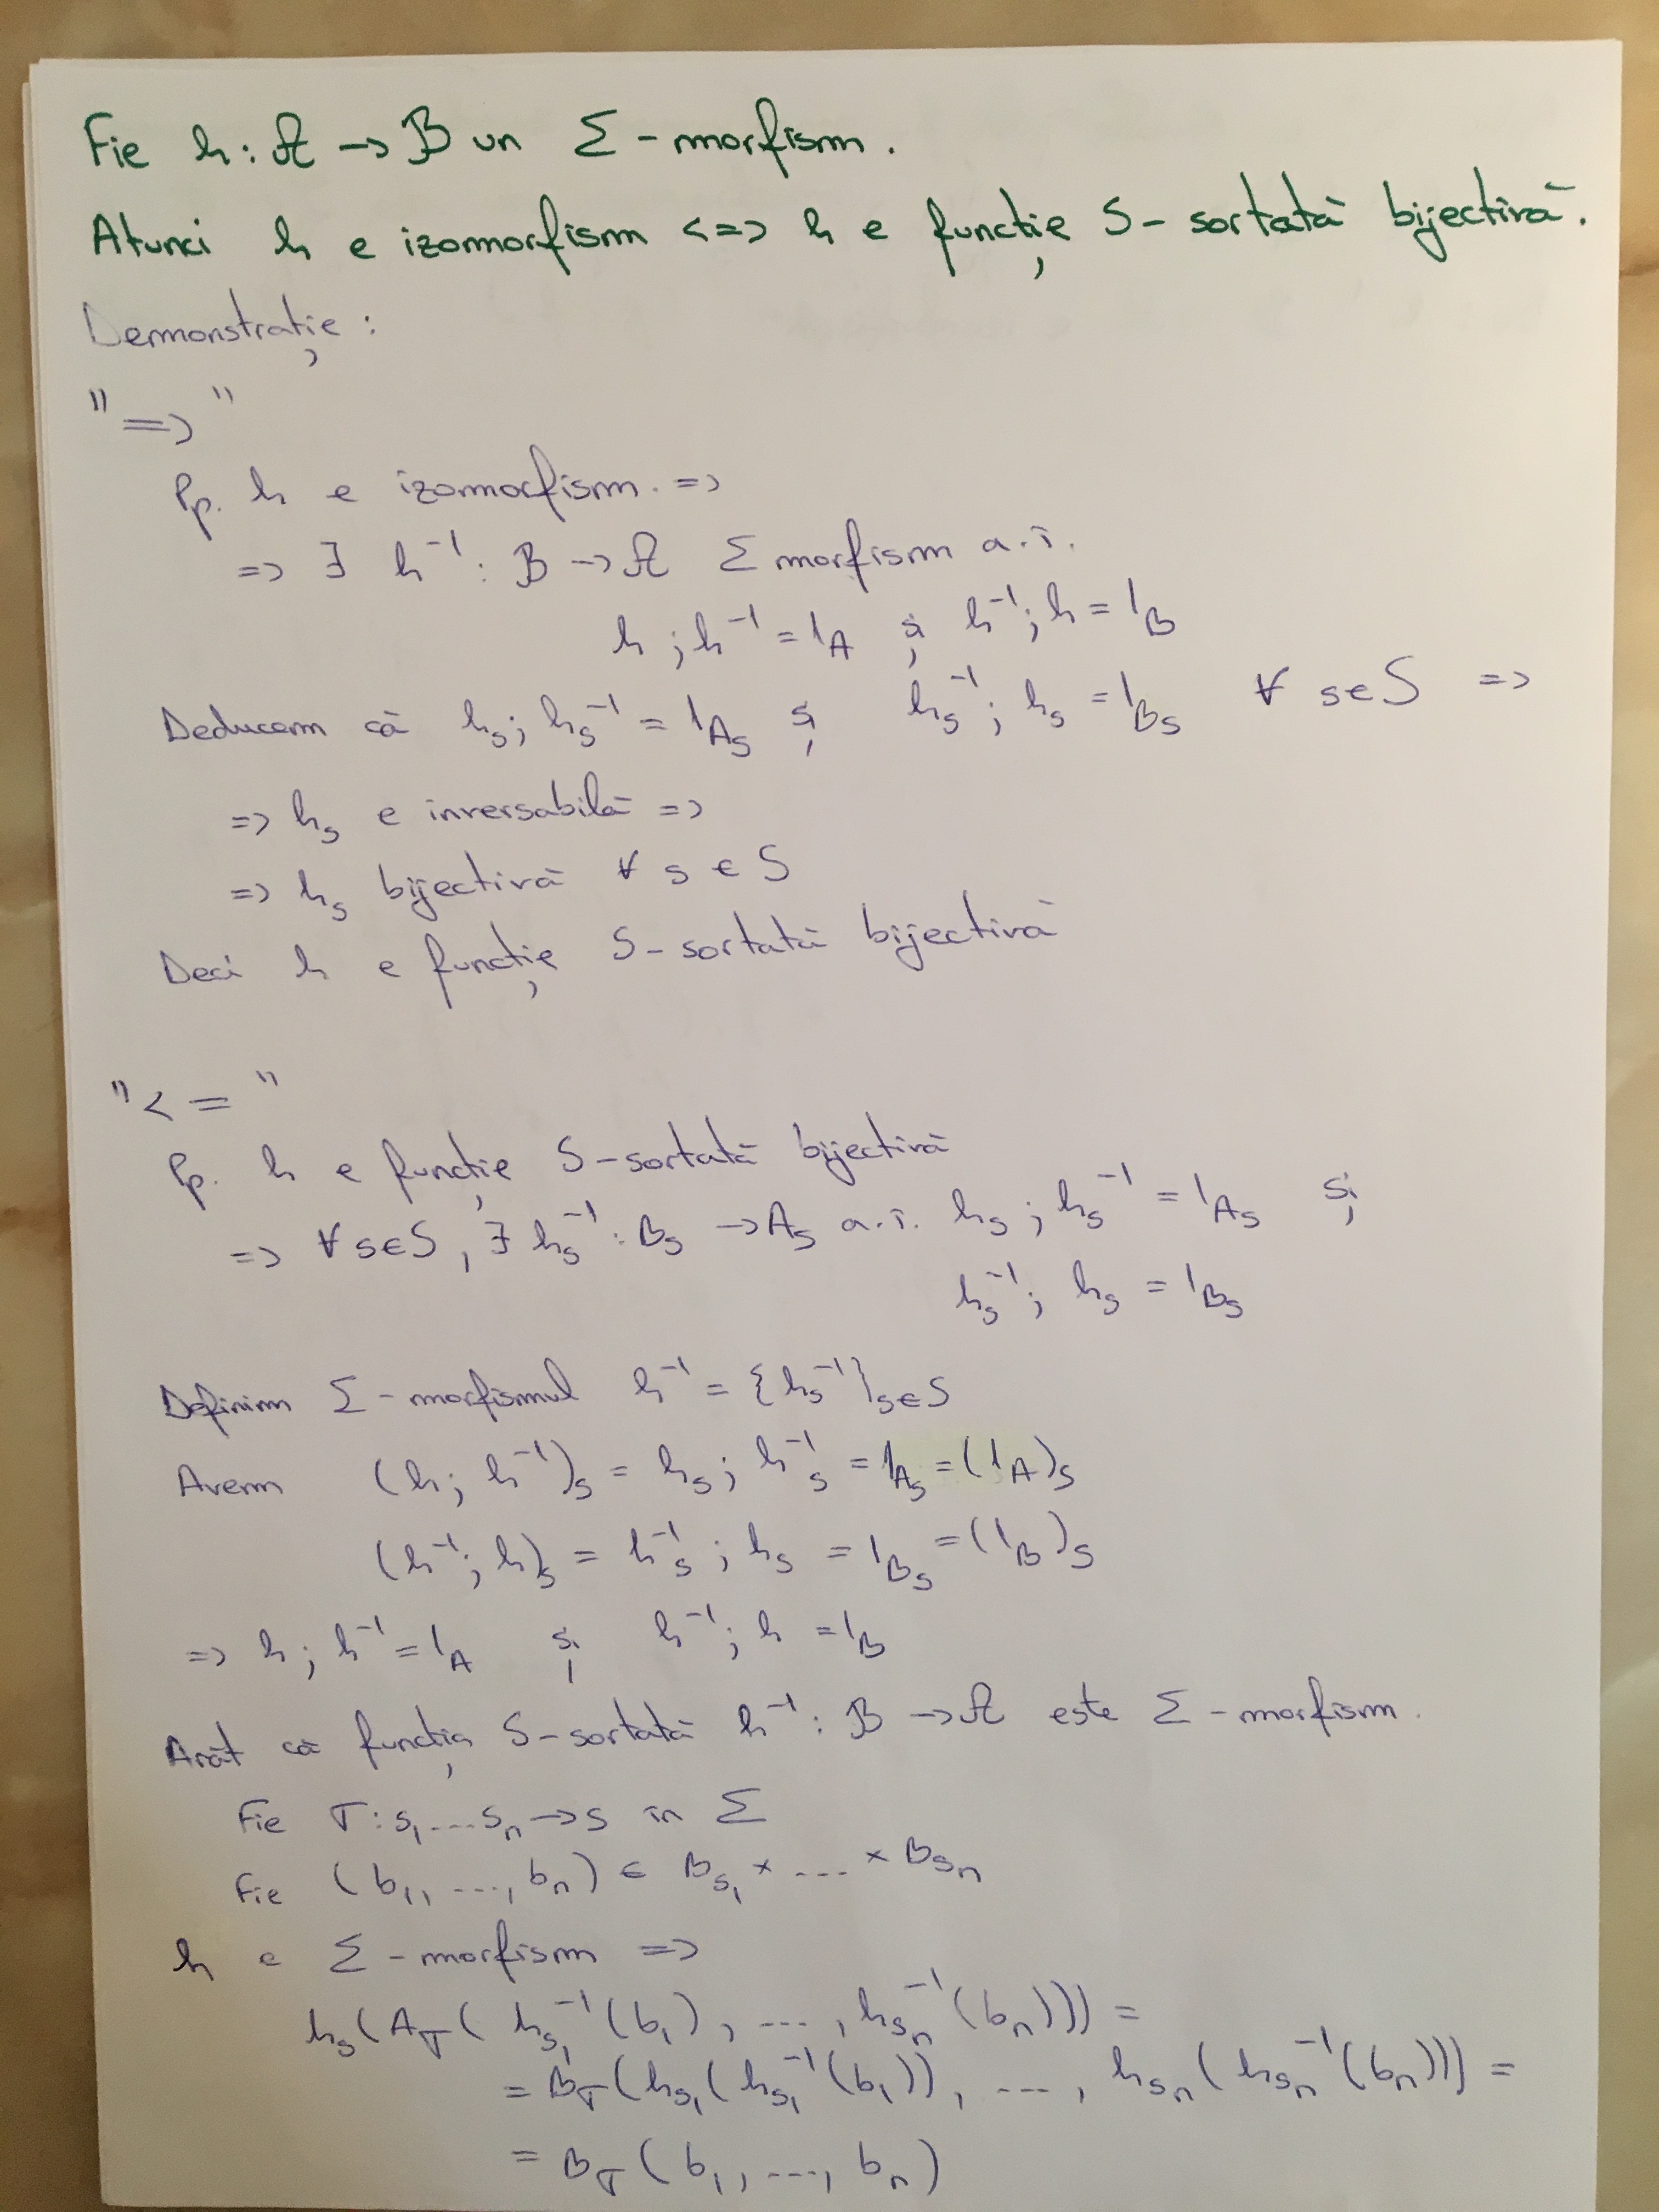 Fie h: 𝒜 → ℬ un Σ - morfism.
Atunci h e izomorfism <=> h e funcție S - sortată bijectivă.
Demonstrație :
"=>"
Pp. h e izomorfism. =>
=> ∃ h⁻¹ : ℬ → 𝒜 Σ morfism a.î.
h ; h⁻¹ = 1_A și h⁻¹; h = 1_B
Deducem că h_s; h_s⁻¹ = 1_{A_s} și h_s⁻¹; h_s = 1_{B_s} ∀ s∈S =>
=> h_s e inversabilă =>
=> h_s bijectivă ∀ s ∈ S
Deci h e funcție S - sortată bijectivă
"<="
Pp. h e funcție S - sortată bijectivă
=> ∀ s∈S, ∃ h_s⁻¹ : B_s → A_s a.î. h_s ; h_s⁻¹ = 1_{A_s} și
h_s⁻¹; h_s = 1_{B_s}
Definim Σ - morfismul h⁻¹ = {h_s⁻¹}_{s∈S}
Avem (h; h⁻¹)_s = h_s; h_s⁻¹ = 1_{A_s} = (1_A)_s
(h⁻¹; h)_s = h_s⁻¹; h_s = 1_{B_s} = (1_B)_s
=> h; h⁻¹ = 1_A și h⁻¹; h = 1_B
Arăt că funcția S - sortată h⁻¹ : ℬ → 𝒜 este Σ - morfism.
Fie σ : s₁...s_n → s in Σ
Fie (b₁, ..., b_n) ∈ B_{s₁} × ... × B_{s_n}
h e Σ - morfism =>
h_s(A_σ( h_{s₁}⁻¹(b₁), ..., h_{s_n}⁻¹(b_n))) =
= B_σ(h_{s₁}(h_{s₁}⁻¹(b₁)), ..., h_{s_n}(h_{s_n}⁻¹(b_n))) =
= B_σ(b₁, ..., b_n)